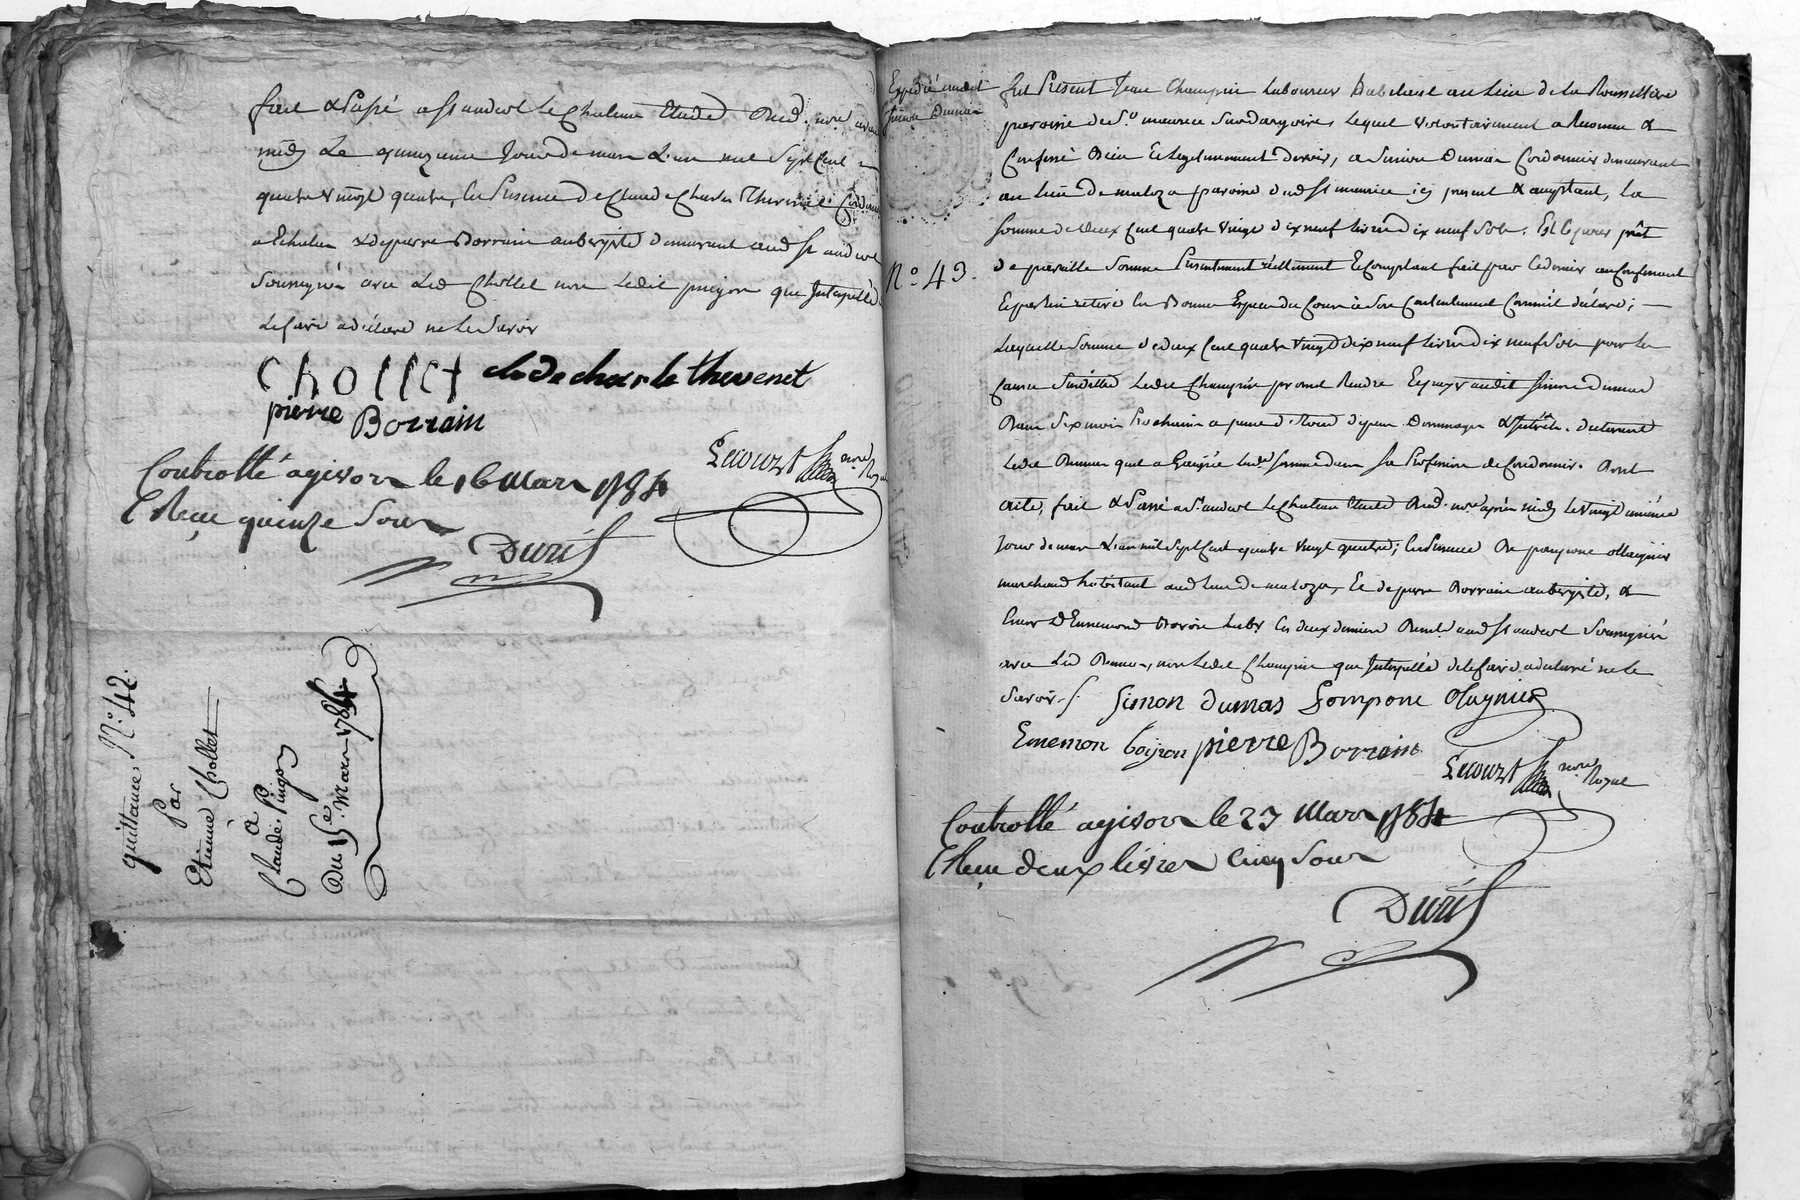 fait & Passé a St andeol le Chateau Etude Dud. nore avant
midy Le quinzieme Jour de mars L'an mil Sept Cent
quatre Vingt quatre, En Presence de Claude Charles Thevenet
a Echalas & de pierre Borrain aubergiste demeurant aud St andeol
Soussignés avec Led Chollet non Ledit pingon que Interpellé
de faire a déclaré ne Le Savoir
chollet clode charle thevenet
pierre Borrain
nore Royal
Controllé a givors le 16 Mars 1784
Reçu quinze Sous
Duris
quittance N.o 42.
Par
Etienne Chollet
à
Claude Pingon
Du 15e Mars 1784
Expedié audit
Simon Dumas
N.o 43.
fut Present Jean Champin Laboureur habitant au Lieu de La Roussilliere
paroisse de St maurice Sur dargoire, Lequel Volontairement a Reconnu &
Confessé Bien Et Legitimement devoir, a Simon Dumas Cordonnier demeurant
au Lieu de maloza paroisse dud St maurice icy present & acceptant, La
Somme de deux Cent quatre Vingt dix neuf livres dix neuf Sols, Et Ce pour prêt
de pareille Somme Presentement réellement Et Comptant fait par Ce dernier au Confessant
Et par lui retiré En Bonnes Especes du Cours à Son Contentement Comme il déclare;
Laquelle Somme de deux Cent quatre Vingt dix neuf livres dix neuf Sols pour La
Cause Susditte Ledit Champin promet Rendre Et payer audit Simon Dumas
Dans Six mois Prochains a peine de Tous depens Dommages & Interêts. declarant
Ledit Dumas que a Gagnée Lade Somme dans Sa Profession de Cordonnier. Dont
acte, fait & Passé a St andeol Le Chateau Etude Dud. nore après midy Le Vingt uniéme
Jour de mars L'an mil Sept Cent quatre Vingt quatre; En Presence De pompone ollagnier
marchand habitant aud lieu de maloza, Et de pierre Borrain aubergiste, &
Ennemond Boiron Ces deux derniers Demt. aud St andeol Soussignés
avec Led Dumas, non Ledit Champin que Interpellé de le faire a declaré ne Le
Savoir
Simon dumas Pompone Olagnier
Ememon boiron pierre Borrain
nore Royal
Controllé a givors le 23 Mars 1784
Reçu deux livres Cinq Sous
Duris